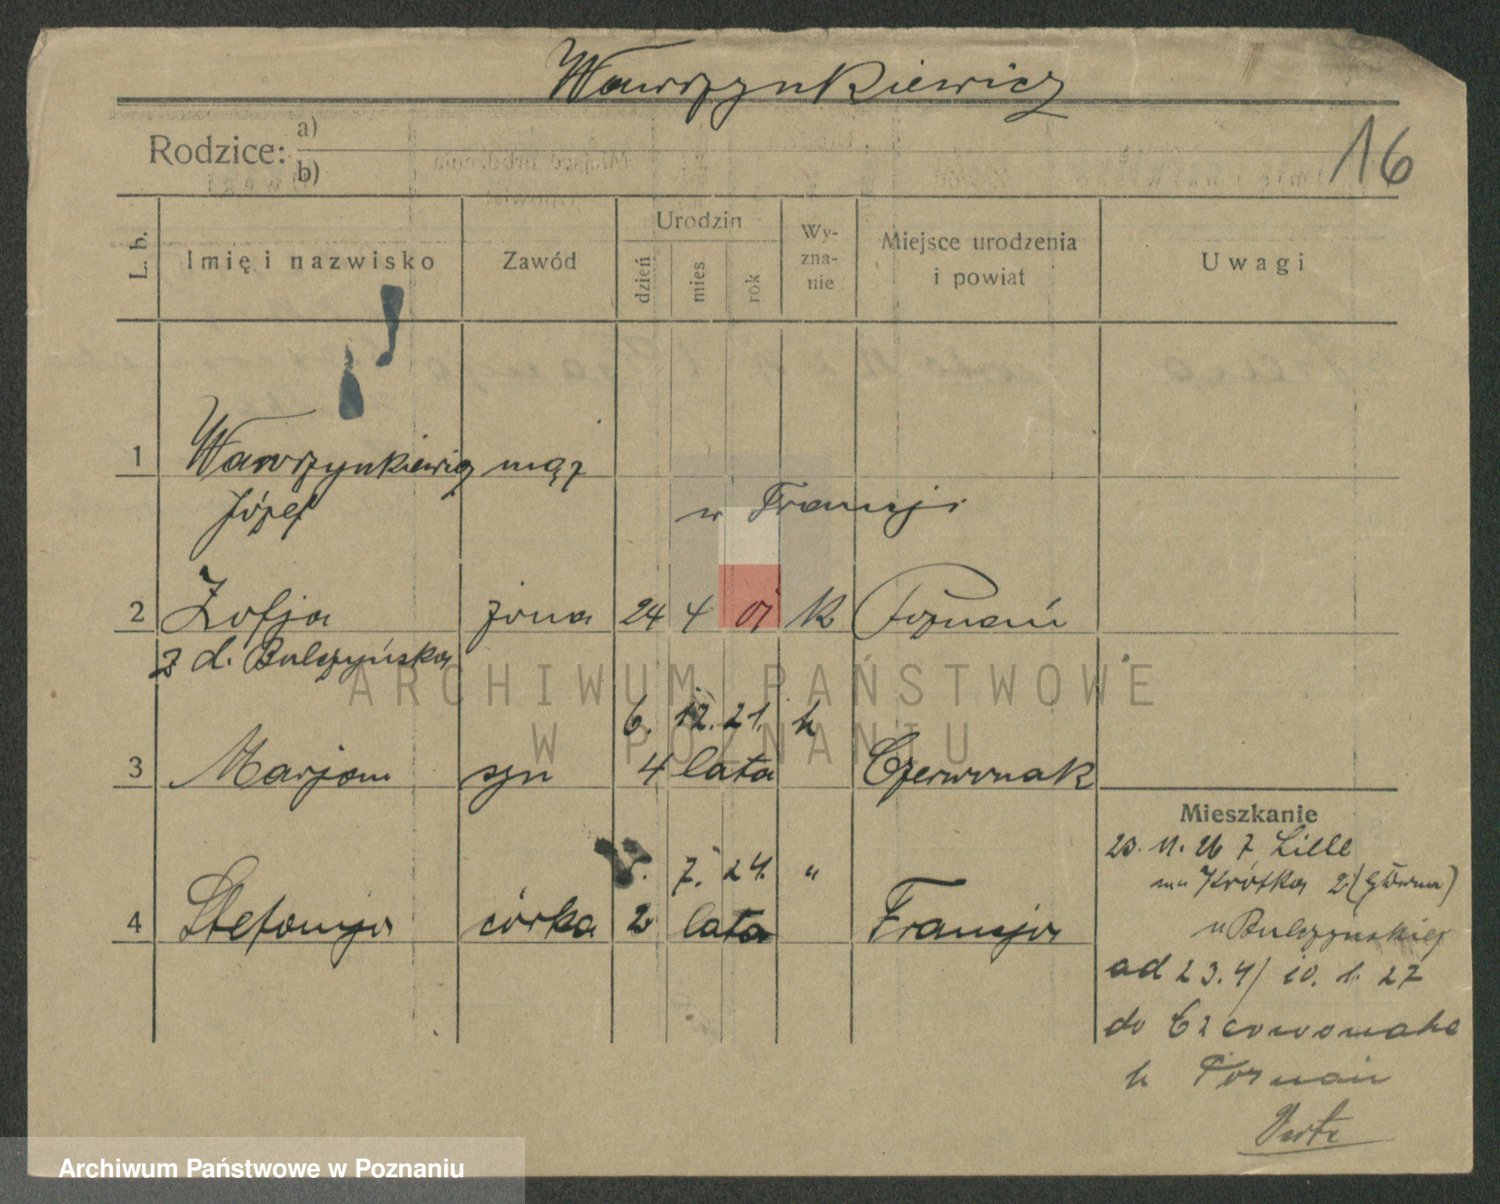 Wawrzynkiewicz
16
Rodzice: a)
b)
L. b.
Imię i nazwisko
Zawód
Urodzin
dzień
mies.
rok
Wy-
zna-
nie
Miejsce urodzenia
i powiat
Uwagi
1 Wawrzynkiewicz mąż
Józef w Francji
2 Zofja żona 24 4 01 k Poznań
z d. Bulczyńska
6. 12. 21. k
3 Marjan syn 4 lata Czerwonak
7. 24. "
4 Stefanja córka 2 lata Francja
Mieszkanie
23. 11. 26 z Lille
Krótka 2. (Główna)
u Bulczyńskiej
ad 23.4/ 10. 1. 27
do Czerwonaka
k Poznań
Verte
ARCHIWUM PAŃSTWOWE
W POZNANIU
Archiwum Państwowe w Poznaniu